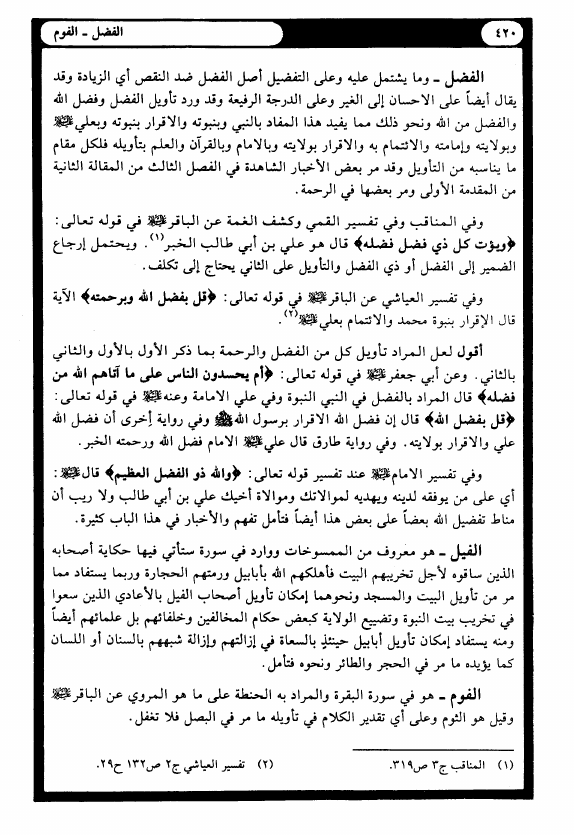 ٤٢٠
الفضل ـ الفوم
الفضل ـ وما يشتمل عليه وعلى التفضيل أصل الفضل ضد النقص أي الزيادة وقد
يقال أيضاً على الاحسان إلى الغير وعلى الدرجة الرفيعة وقد ورد تأويل الفضل وفضل الله
والفضل من الله ونحو ذلك مما يفيد هذا المفاد بالنبي وبنبوته والاقرار بنبوته وبعلي عليه السلام
وبولايته وإمامته والائتمام به والاقرار بولايته وبالامام وبالقرآن والعلم بتأويله فلكل مقام
ما يناسبه من التأويل وقد مر بعض الأخبار الشاهدة في الفصل الثالث من المقالة الثانية
من المقدمة الأولى ومر بعضها في الرحمة.
وفي المناقب وفي تفسير القمي وكشف الغمة عن الباقر عليه السلام في قوله تعالى:
﴿ويؤت كل ذي فضل فضله﴾ قال هو علي بن أبي طالب الخبر(١). ويحتمل إرجاع
الضمير إلى الفضل أو ذي الفضل والتأويل على الثاني يحتاج إلى تكلف.
وفي تفسير العياشي عن الباقر عليه السلام في قوله تعالى: ﴿قل بفضل الله وبرحمته﴾ الآية
قال الإقرار بنبوة محمد والائتمام بعلي عليه السلام(٢).
أقول لعل المراد تأويل كل من الفضل والرحمة بما ذكر الأول بالأول والثاني
بالثاني. وعن أبي جعفر عليه السلام في قوله تعالى: ﴿أم يحسدون الناس على ما آتاهم الله من
فضله﴾ قال المراد بالفضل في النبي النبوة وفي علي الامامة وعنه عليه السلام في قوله تعالى:
﴿قل بفضل الله﴾ قال إن فضل الله الاقرار برسول الله ﷺ وفي رواية إخرى أن فضل الله
علي والاقرار بولايته. وفي رواية طارق قال علي عليه السلام الامام فضل الله ورحمته الخبر.
وفي تفسير الامام عليه السلام عند تفسير قوله تعالى: ﴿والله ذو الفضل العظيم﴾ قال عليه السلام:
أي على من يوفقه لدينه ويهديه لموالاتك وموالاة أخيك علي بن أبي طالب ولا ريب أن
مناط تفضيل الله بعضاً على بعض هذا أيضاً فتأمل تفهم والأخبار في هذا الباب كثيرة.
الفيل ـ هو معروف من الممسوخات ووارد في سورة ستأتي فيها حكاية أصحابه
الذين ساقوه لأجل تخريبهم البيت فأهلكهم الله بأبابيل ورمتهم الحجارة وربما يستفاد مما
مر من تأويل البيت والمسجد ونحوهما إمكان تأويل أصحاب الفيل بالأعادي الذين سعوا
في تخريب بيت النبوة وتضييع الولاية كبعض حكام المخالفين وخلفائهم بل علمائهم أيضاً
ومنه يستفاد إمكان تأويل أبابيل حينئذٍ بالسعاة في إزالتهم وإزالة شبههم بالسنان أو اللسان
كما يؤيده ما مر في الحجر والطائر ونحوه فتأمل.
الفوم ـ هو في سورة البقرة والمراد به الحنطة على ما هو المروي عن الباقر عليه السلام
وقيل هو الثوم وعلى أي تقدير الكلام في تأويله ما مر في البصل فلا تغفل.
(١) المناقب ج٣ ص٣١٩.
(٢) تفسير العياشي ج٢ ص١٣٢ ح٢٩.